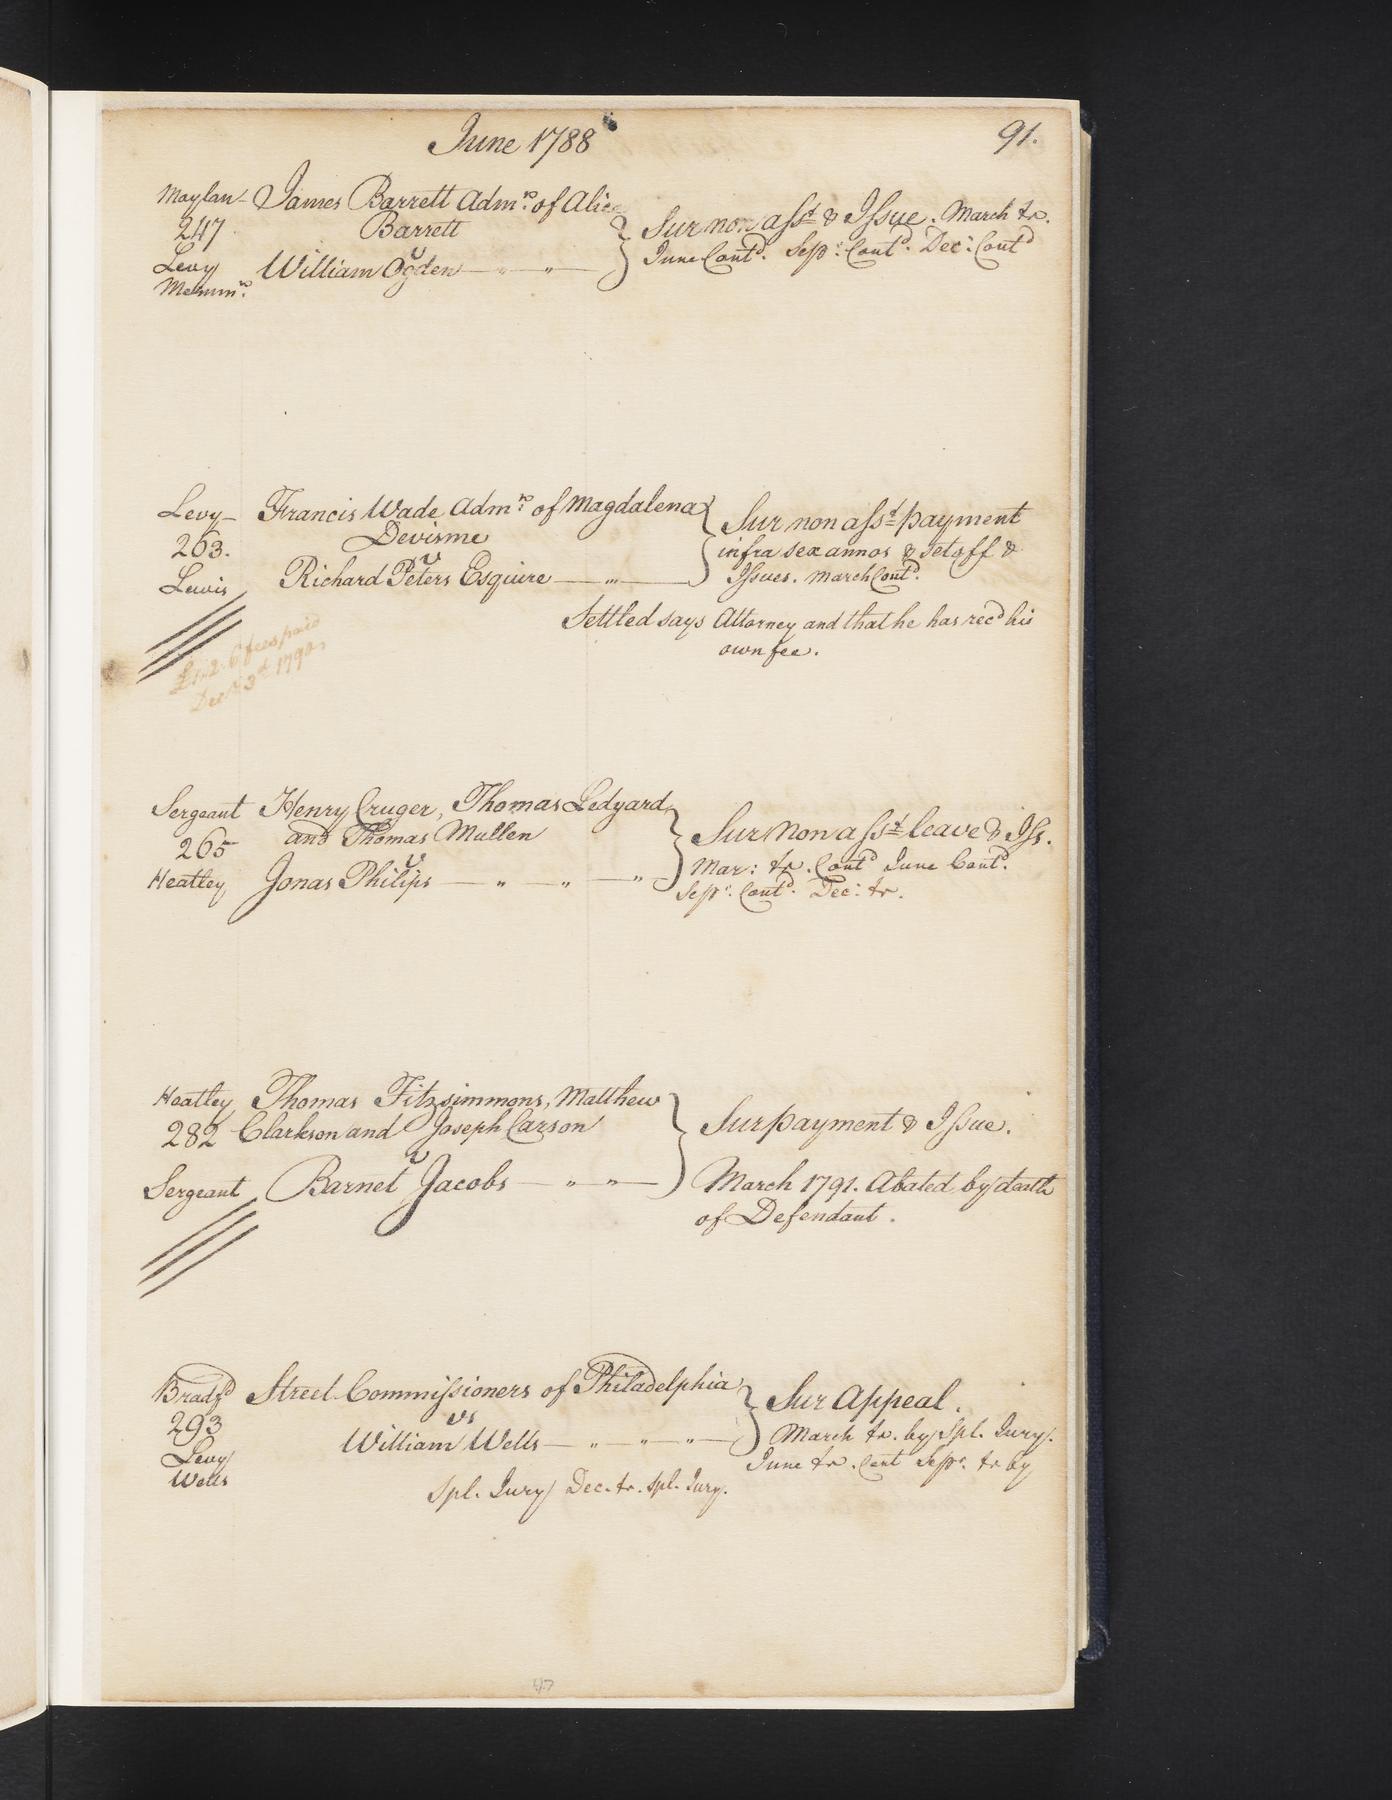 June 1788
91.
Moylan James Barrett Admr. of Alice
247 Barrett
v
Levy William Ogden
Sur non asst & Issue. March tr.
June Contd. Sepr: Contd. Dec: Contd
Levy Francis Wade Admr. of Magdalena
263. Devisme
v
Lewis Richard Peters Esquire
Sur non asst payment
infra sex annos & setoff &
Issues. March Contd.
Settled says Attorney and that he has recd his
own fee.
£1.2.6 fees paid
Decr 3d 1790
Sergeant Henry Cruger, Thomas Ledyard
265 and Thomas Mullen
v
Heatley Jonas Philips
Sur Non asst leave & Iss.
Mar: tr. Contd June Contd.
Sepr. Contd. Dec: tr.
Heatley Thomas Fitzsimmons, Matthew
282 Clarkson and Joseph Carson
v
Sergeant Barnet Jacobs
Sur payment & Issue.
March 1791. Abated by death
of Defendant.
Bradfd Street Commissioners of Philadelphia
293 vs
Levy William Wells
Wells
Sur Appeal.
March tr. by Spl. Jury.
June tr. Cont Sepr. tr by
Spl. Jury Dec. tr. Spl. Jury.
47